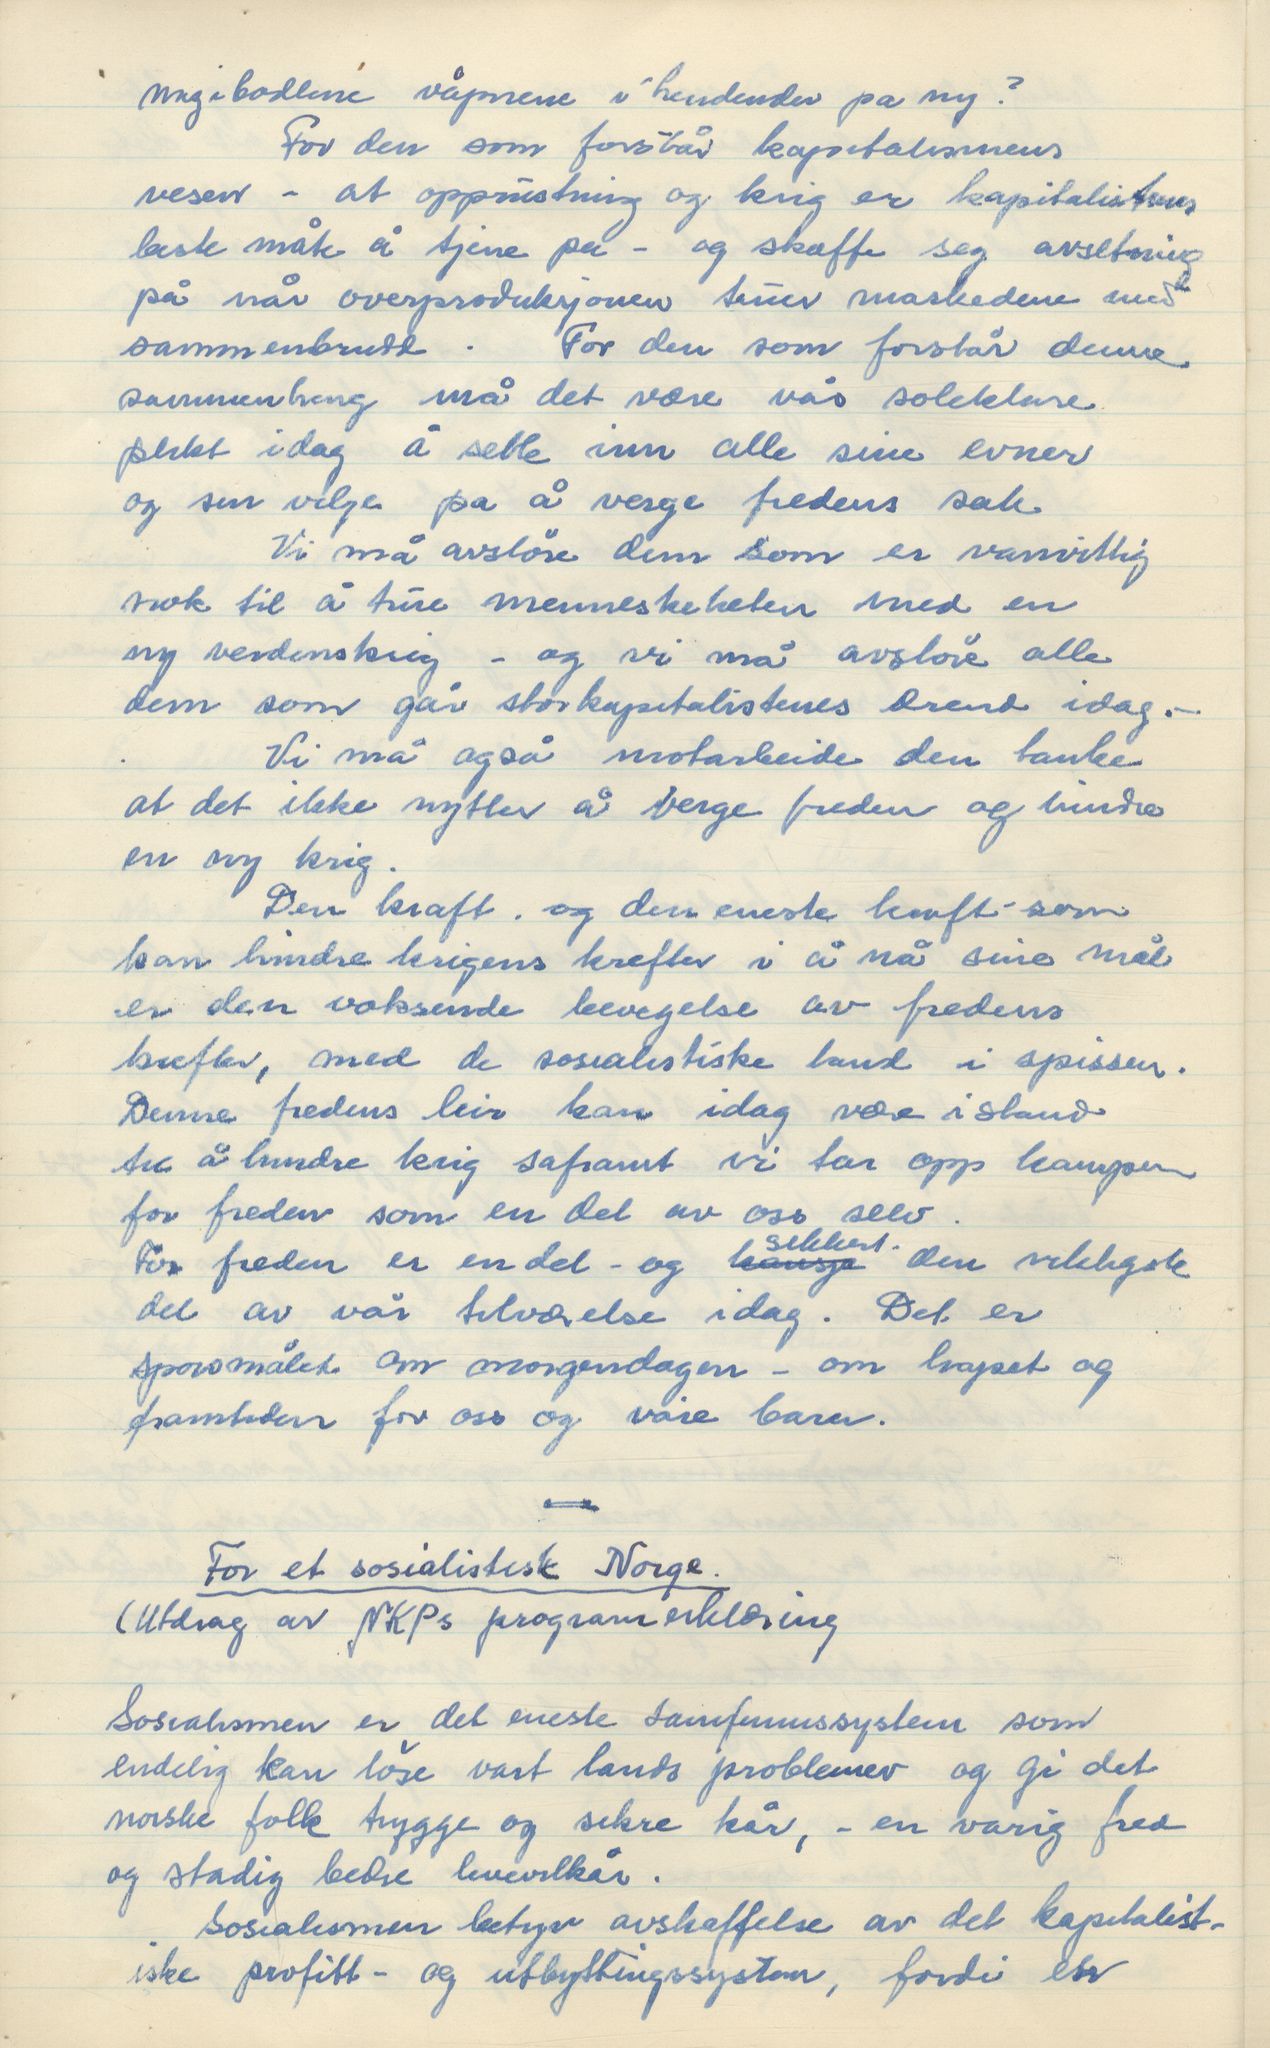 nazibødlene våpnene i hendender pa ny?
For den som forstår kapitalismens
vesen - at opprustning og krig er kapitalistens
beste måte å tjene pa - og skaffe seg avsetning
på når overproduksjonen truer maskedene med
sammenbrudd. For den som forstår denne
sammenheng må det være vås soleklare
plikt idag å sette inn alle sine evner
og sin vilje pa å verge fredens sak
Vi må avsløre dem som er vanvittig
nok til å true menneskeheten med en
ny verdenskrig - og vi må avsløre alle
dem som går storkapitalistenes ærend idag.-
Vi må også motarbeide den tanke
at det ikke nytter å verge freden og hindre
en ny krig.
Den kraft. og den eneste kraft som
kan hindre krigens krefter i å nå sine mål
er den voksende bevegelse av fredens
krefter, med de sosialistiske land i spissen.
Denne fredens leir kan idag være istand
til å hindre krig saframt vi tar opp kampen
for freden som en del av oss selv.
For freden er en del - og kansje sikkert. den viktigste
del av vår tilværelse idag. Det er
sporsmålet om morgendagen - om håpet og
framtiden for oss og våre barn.
For et sosialistisk Norge.
(Utdrag av NKPs programerklæring
Sosialismen er det eneste samfunnssystem som
endelig kan løse vart lands problemer og gi det
norske folk trygge og sikre kår, - en varig fred
og stadig bedre levevilkår.
Sosialismen betyr avskaffelse av det kapitalist-
iske profitt - og utbyttingssystem, fordi